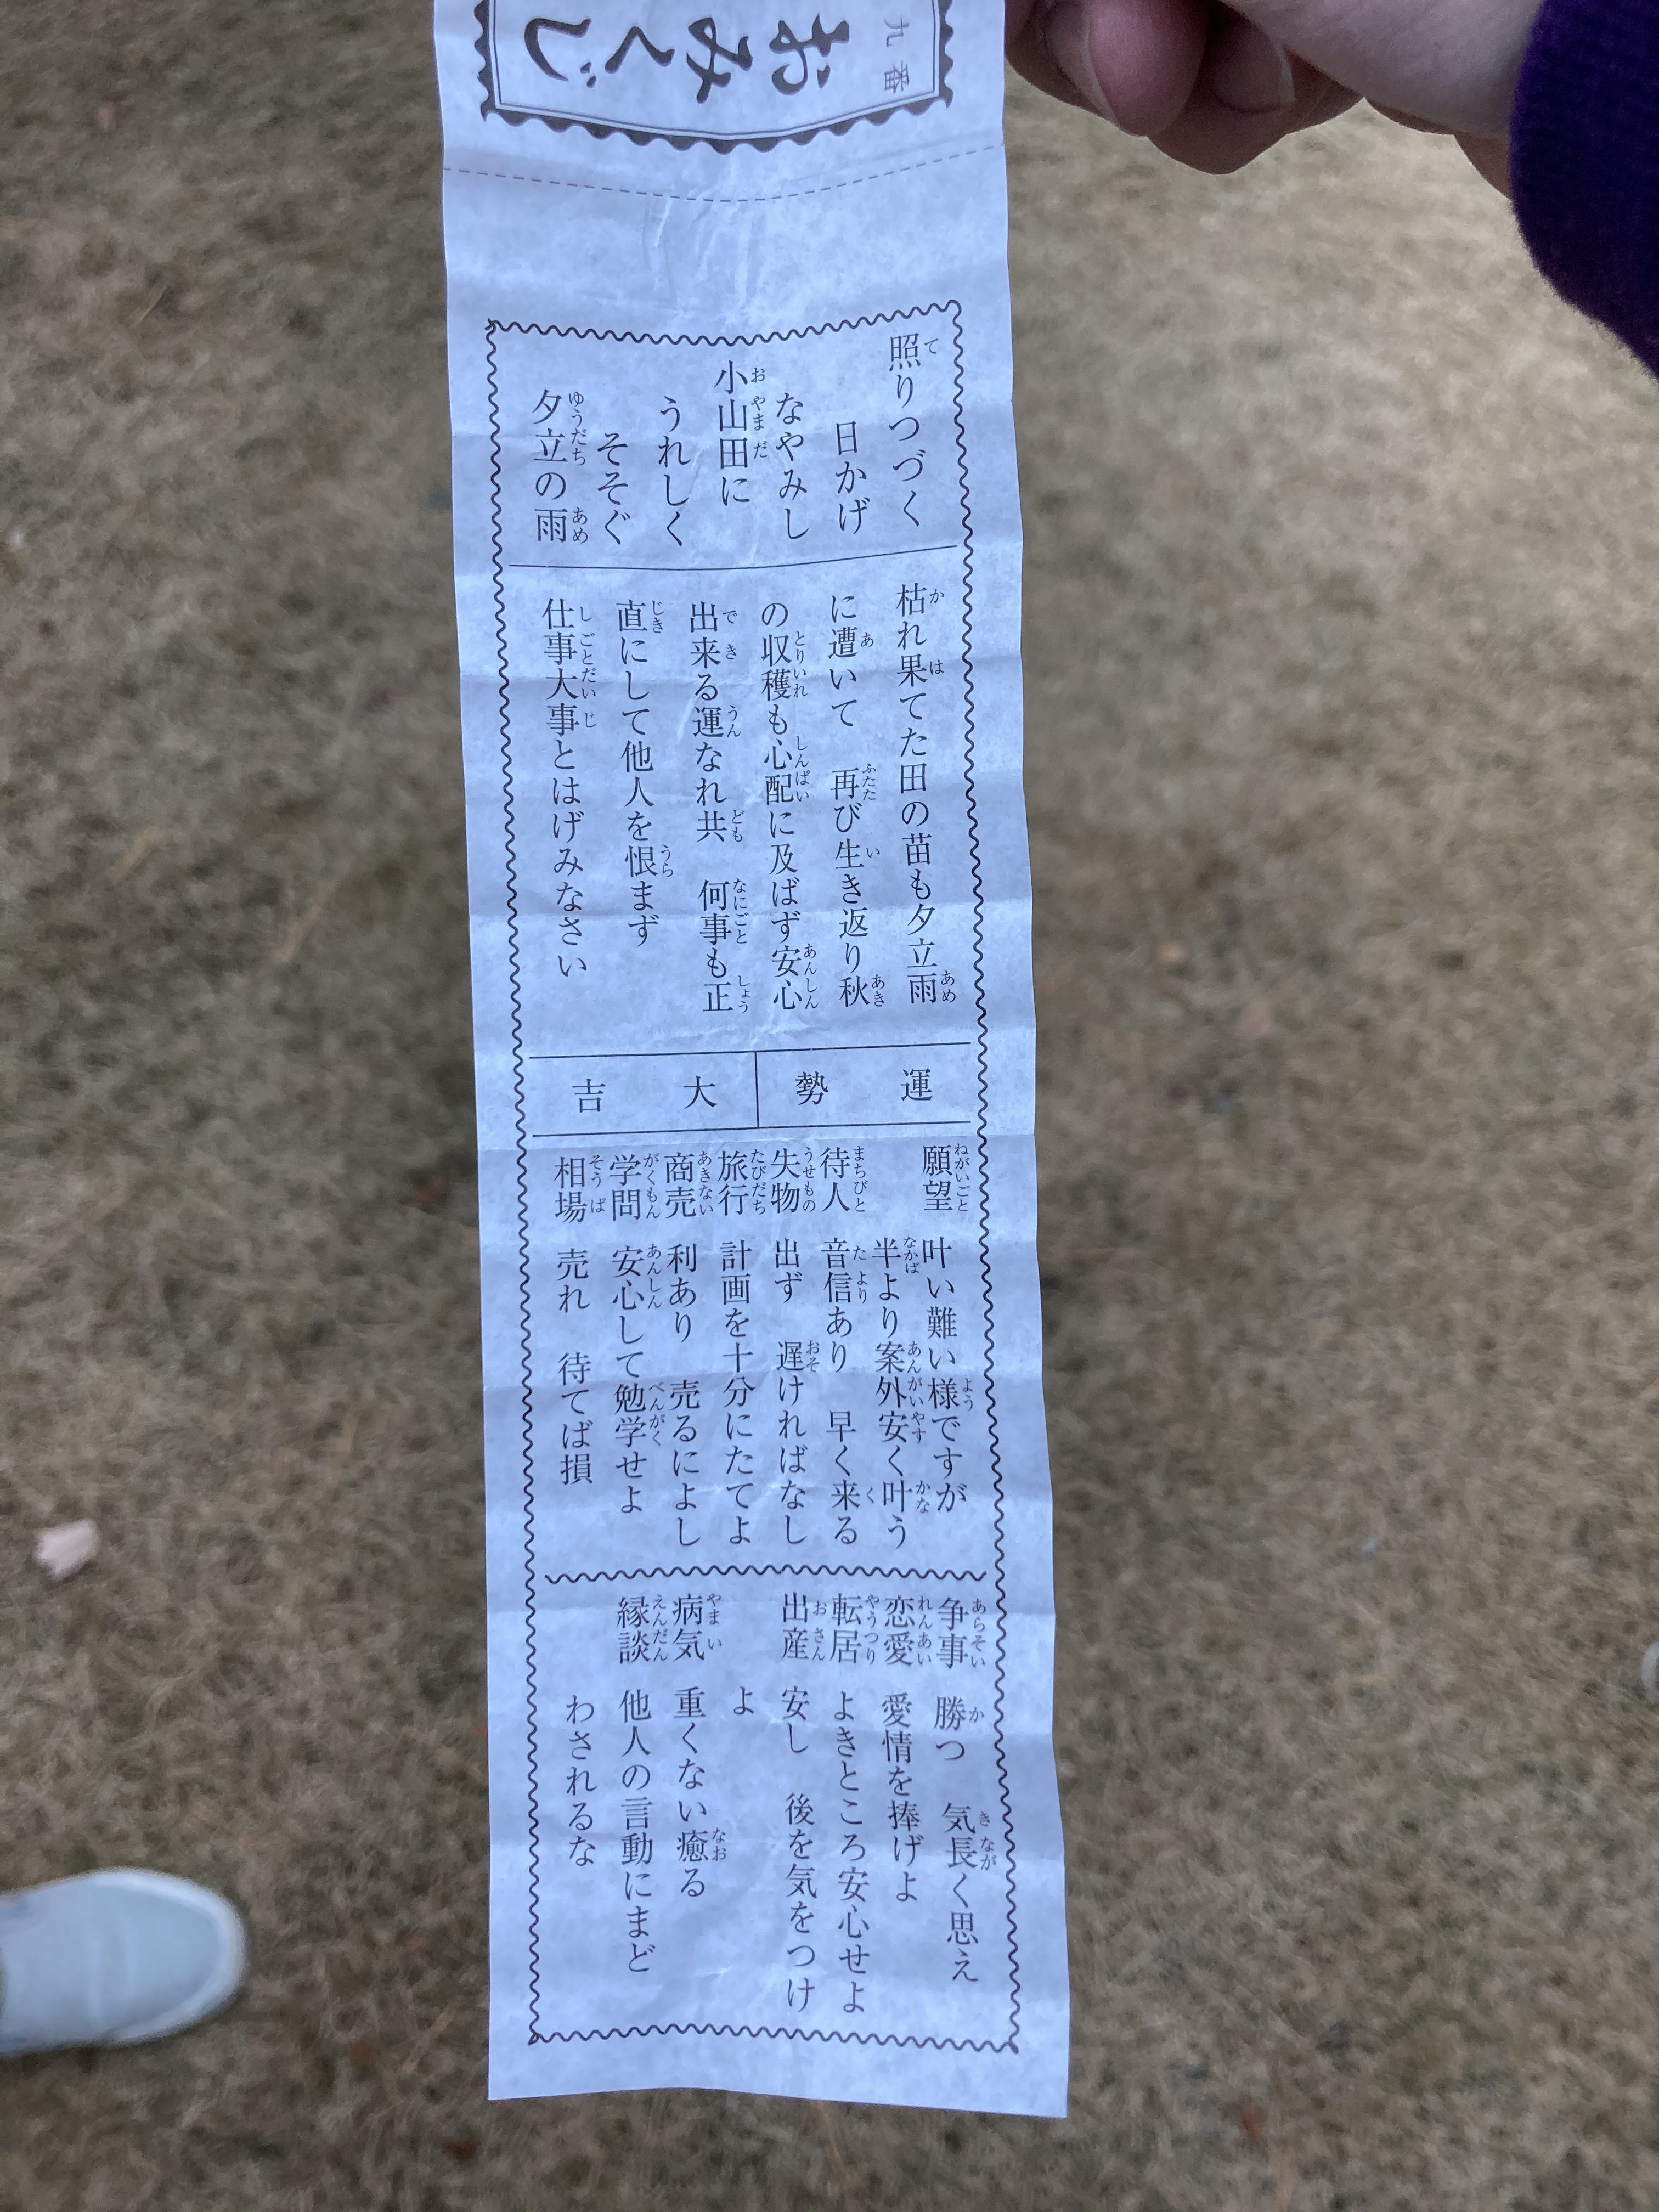 九番
おみくじ
照りつづく
日かげ
なやみし
小山田に
うれしく
そそぐ
夕立の雨
枯れ果てた田の苗も夕立雨
に遭いて　再び生き返り秋
の収穫も心配に及ばず安心
出来る運なれ共　何事も正
直にして他人を恨まず
仕事大事とはげみなさい
運勢　大吉
願望　叶い難い様ですが
半より案外安く叶う
待人　音信あり　早く来る
失物　出ず　遅ければなし
旅行　計画を十分にたてよ
商売　利あり　売るによし
学問　安心して勉学せよ
相場　売れ　待てば損
争事　勝つ　気長く思え
恋愛　愛情を捧げよ
転居　よきところ安心せよ
出産　安し　後を気をつけ
よ
病気　重くない癒る
縁談　他人の言動にまど
わされるな